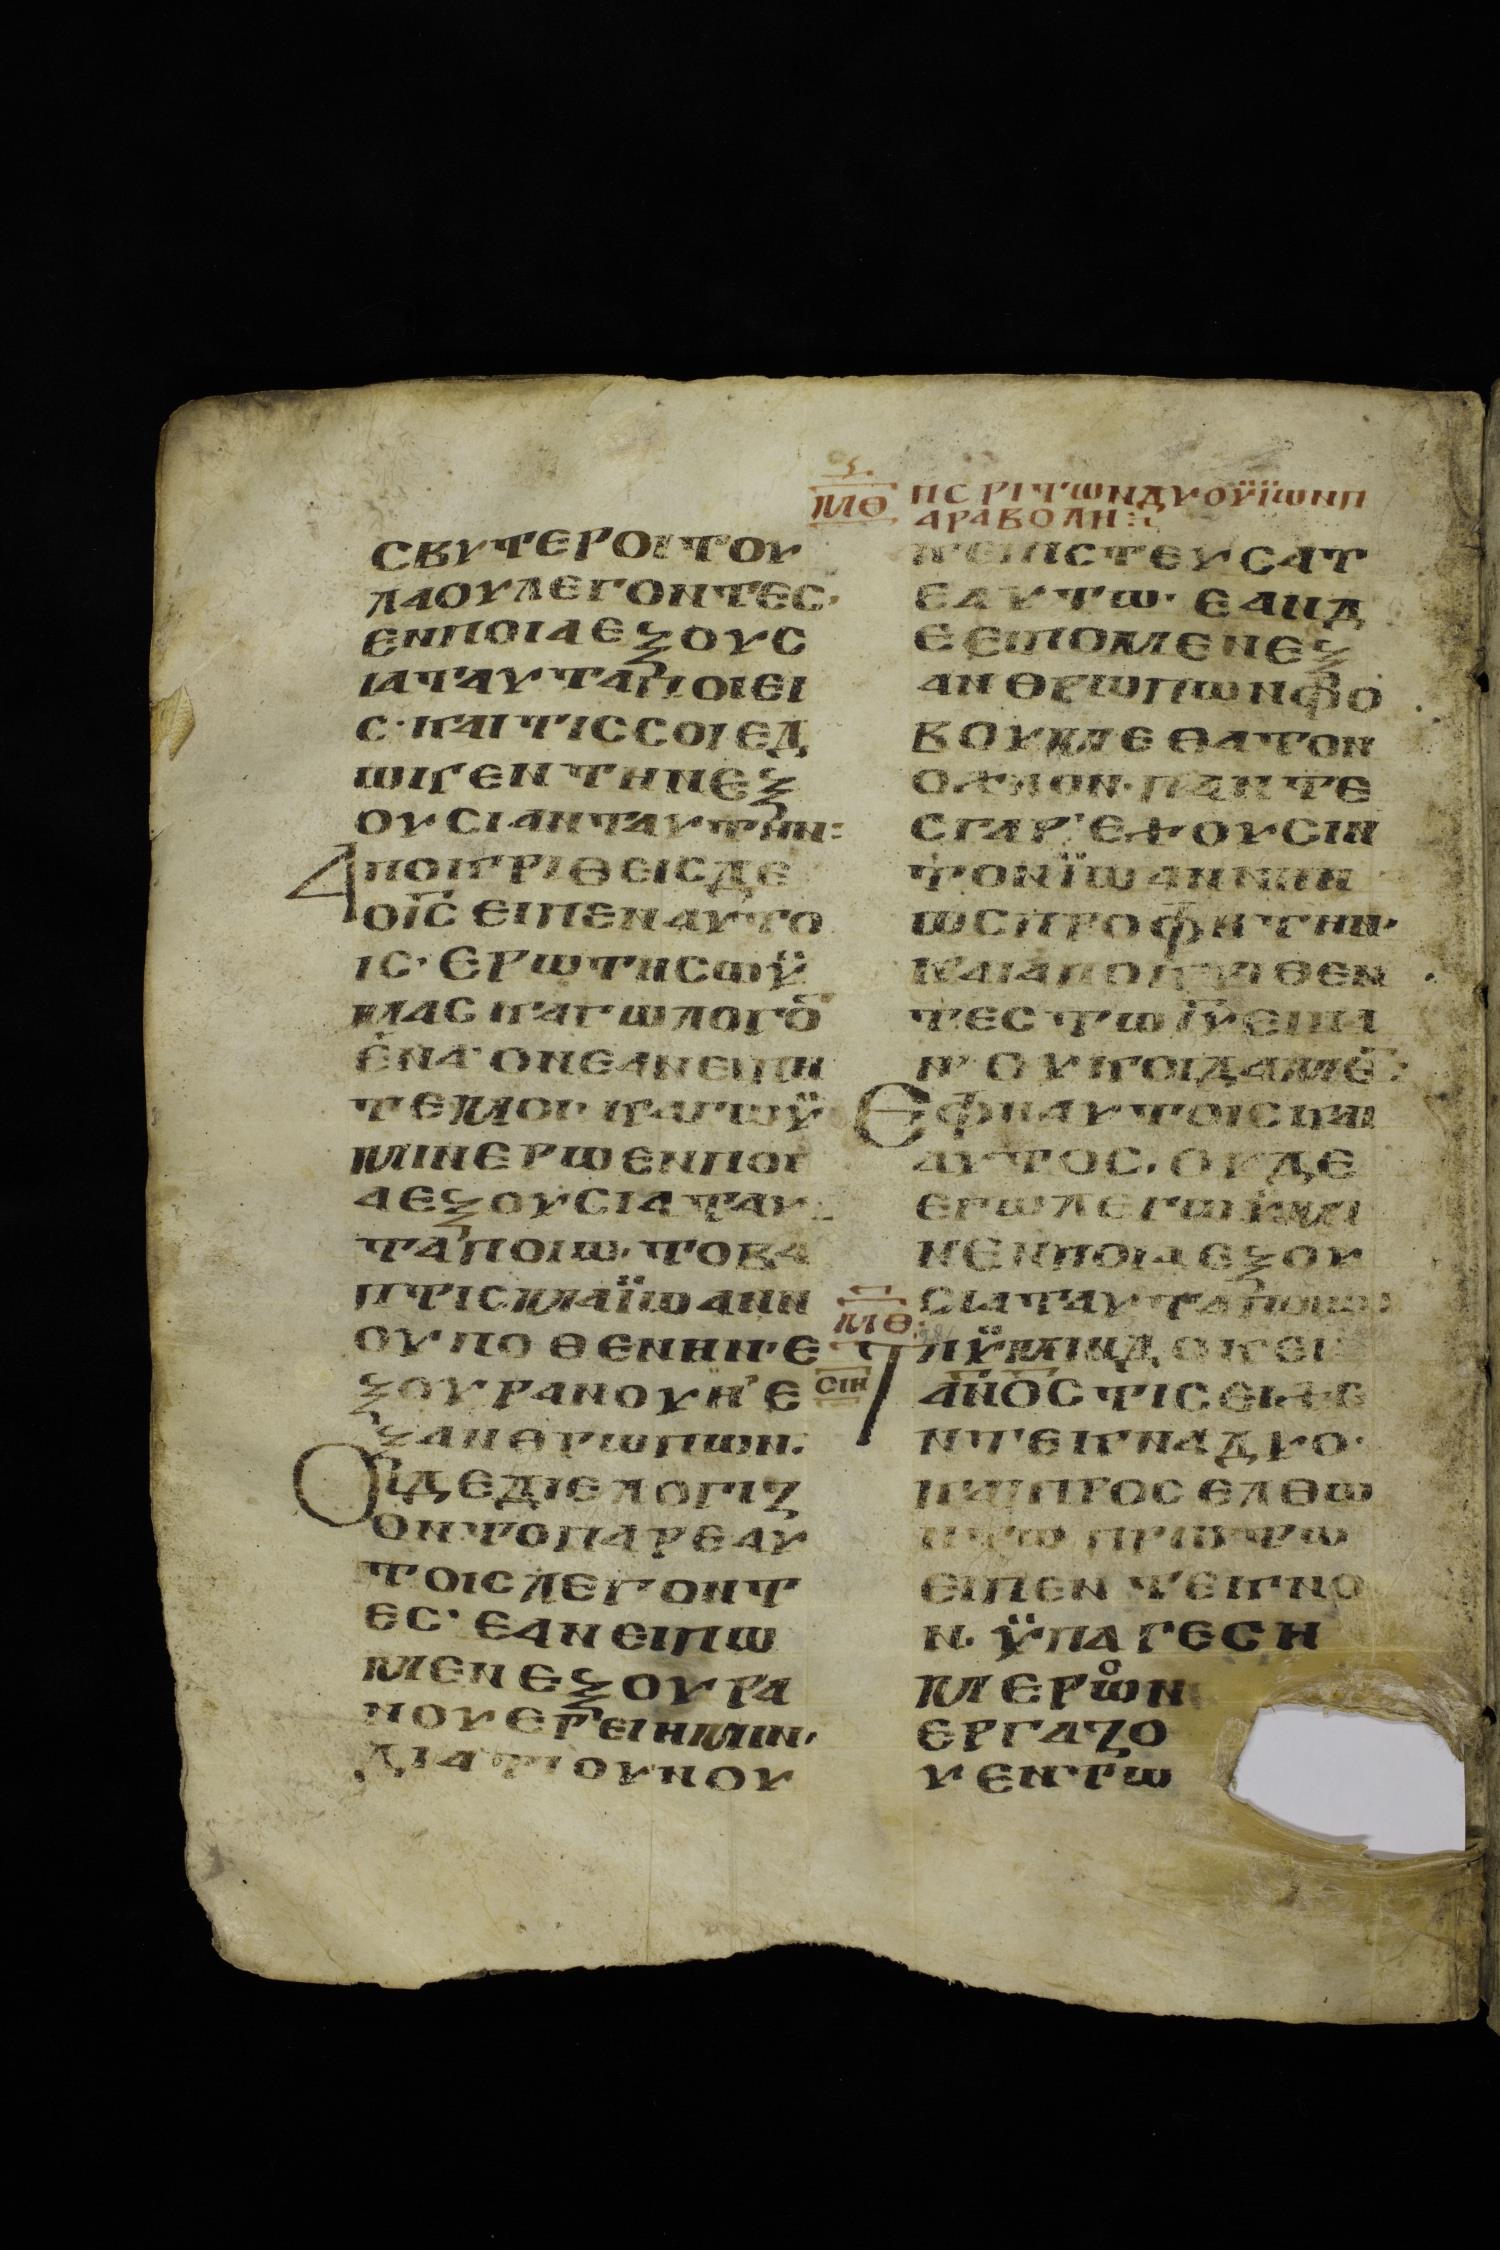 ΜΘ ΠΕΡΙΤΩΝΔΥΟΫΪΩΝΠ
ΑΡΑΒΟΛΗ
ΣΒΥΤΕΡΟΙΤΟΥ
ΛΑΟΥΛΕΓΟΝΤΕΣ·
ΕΝΠΟΙΑΕΞΟΥΣ
ΙΑΤΑΥΤΑΠΟΙΕΙ
Σ·ΚΑΙΤΙΣΣΟΙΕΔ
ΩΚΕΝΤΗΝΕΞ
ΟΥΣΙΑΝΤΑΥΤΗΝ:
ΑΠΟΚΡΙΘΕΙΣΔΕ
ΟΙ̅Σ̅ΕΙΠΕΝΑΥΤΟ
ΙΣ·ΕΡΩΤΗΣΩΫ
ΜΑΣΚΑΓΩΛΟΓΟ̅
ΕΝΑ·ΟΝΕΑΝΕΙΠΗ
ΤΕΜΟΙ·ΚΑΓΩΫ
ΜΙΝΕΡΩΕΝΠΟΙ
ΑΕΞΟΥΣΙΑΤΑΥ
ΤΑΠΟΙΩ·ΤΟΒΑ
ΠΤΙΣΜΑΪΩΑΝΝ
ΟΥΠΟΘΕΝΗΝ·Ε
ΞΟΥΡΑΝΟΥΗ᾽Ε
ΞΑΝΘΡΩΠΩΝ·
ΟΙΔΕΔΙΕΛΟΓΙΖ
ΟΝΤΟΠΑΡΕΑΥ
ΤΟΙΣΛΕΓΟΝΤ
ΕΣ·ΕΑΝΕΙΠΩ
ΜΕΝΕΞΟΥΡΑ
ΝΟΥΕΡΕΙΗΜΙΝ·
ΔΙΑΤΙΟΥΝΟΥ
ΚΕΠΙΣΤΕΥΣΑΤ
ΕΑΥΤΩ·ΕΑΝΔ
ΕΕΙΠΟΜΕΝΕΞ
ΑΝΘΡΩΠΩΝΦΟ
ΒΟΥΜΕΘΑΤΟΝ
ΟΧΛΟΝ·ΠΑΝΤΕ
ΣΓΑΡ᾽ΕΧΟΥΣΙΝ
ΤΟΝΪΩΑΝΝΗΝ
ΩΣΠΡΟΦΗΤΗΝ·
ΚΑΙΑΠΟΚΡΙΘΕΝ
ΤΕΣΤΩΙ̅Υ̅ΕΙΠΑ
Ν·ΟΥΚΟΙΔΑΜΕ̅:
ΕΦΗΑΥΤΟΙΣΚΑΙ
ΑΥΤΟΣ·ΟΥΔΕ
ΕΓΩΛΕΓΩΫΜΙ
ΝΕΝΠΟΙΑΕΞΟΥ
ΣΙΑΤΑΥΤΑΠΟΙΩ:
ΜΘ
ΤΙΫΜΙΝΔΟΚΕΙ
ΣΙΗ
Α̅Ν̅Ο̅Σ̅ΤΙΣΕΙΧΕ
ΝΤΕΚΝΑΔΥΟ·
ΚΑΙΠΡΟΣΕΛΘΩ
ΝΤΩΠΡΩΤΩ
ΕΙΠΕΝΤΕΚΝΟ
Ν·ΫΠΑΓΕΣΗ
ΜΕΡΩΝ
ΕΡΓΑΖΟ
ΥΕΝΤΩ